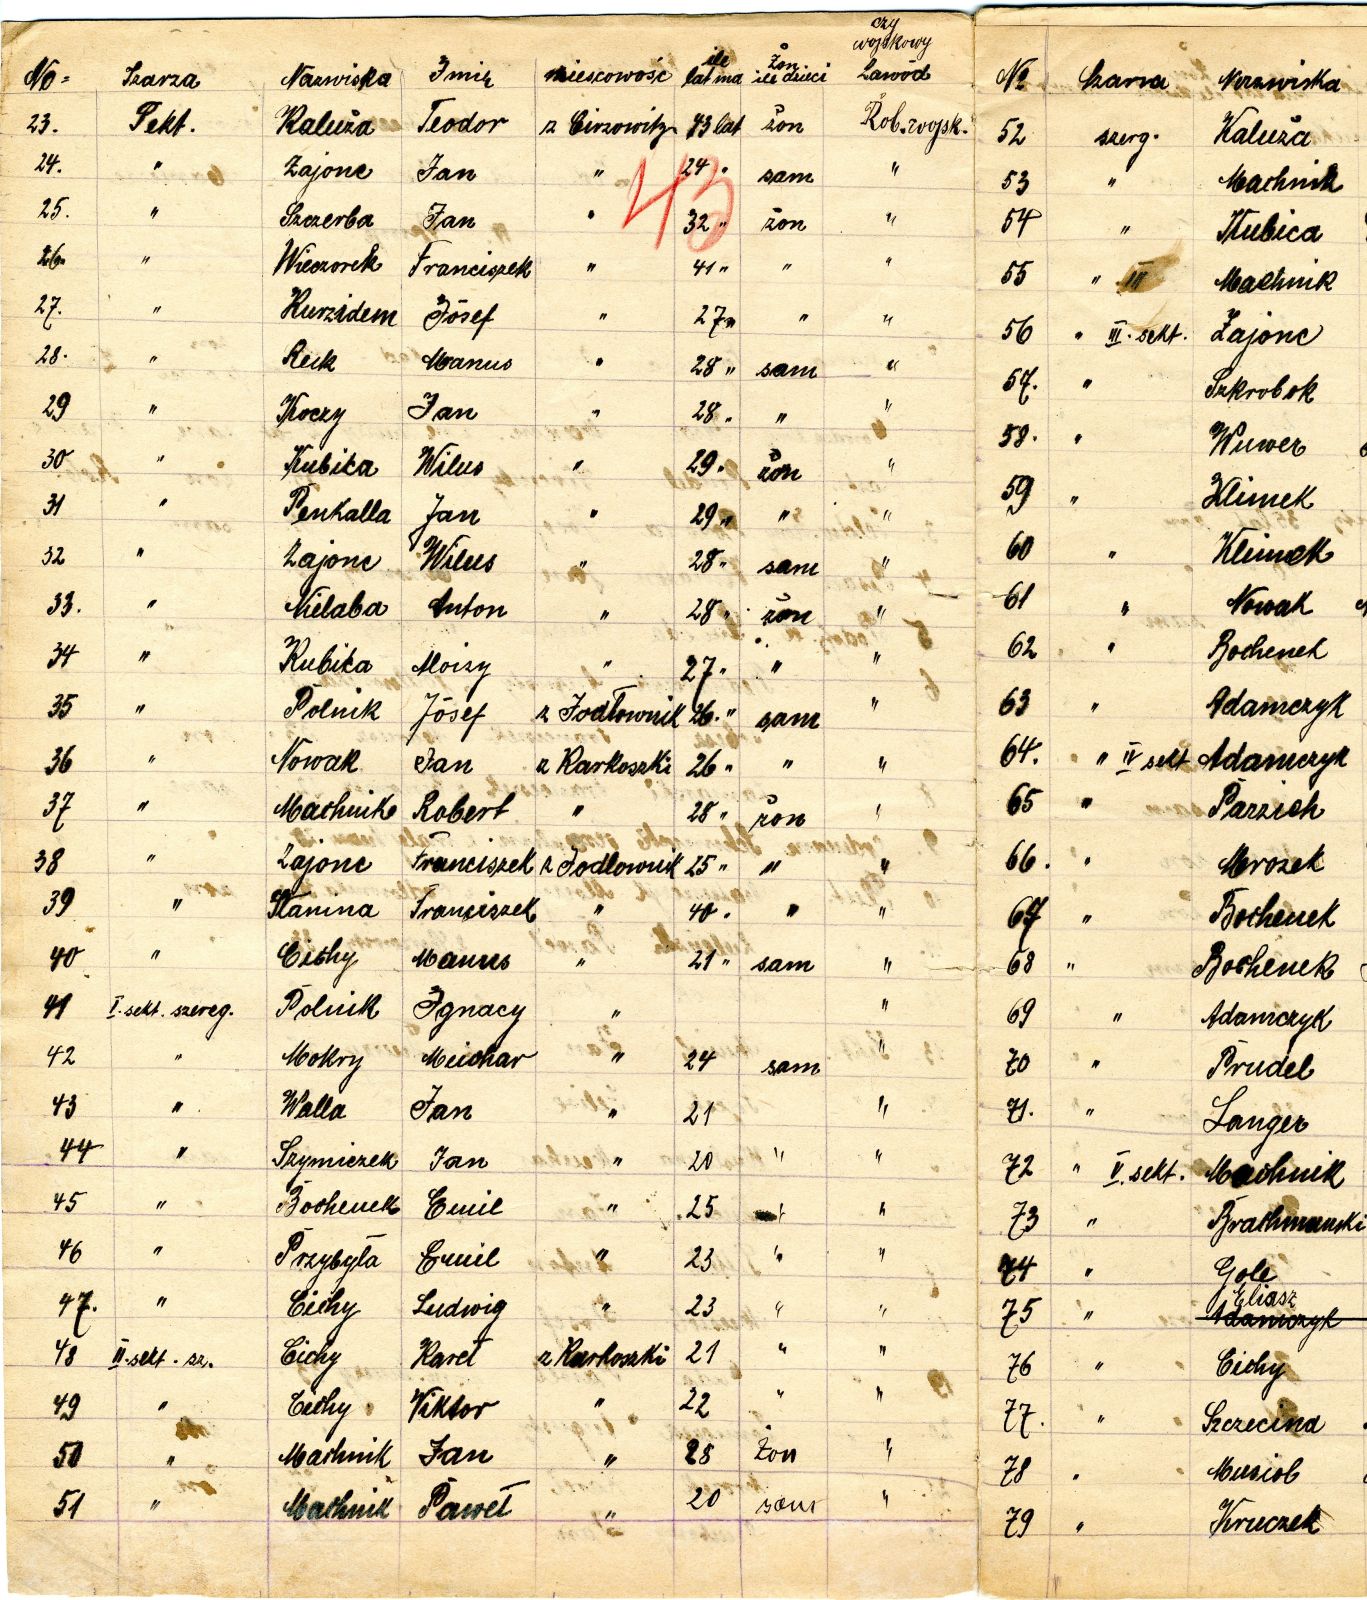 czy
wojskowy
No= Szarża Nazwiska Imię miescowość ile lat ma żon ile dzieci Zawód
23. Pekt. Kaluża Teodor z Cirzowitz 43 lat żon Rob. wojsk.
43
24. " Zajonc Jan " 24 " sam "
25. " Szczerba Jan " 32 " żon "
26. " Wieczorek Franciszek " 41 " " "
27. " Kurzidem Józef " 27 " " "
28. " Reck Manus " 28 " sam "
29 " Koczy Jan " 28 " " "
30 " Kubica Wilus " 29 " żon "
31 " Penkalla Jan " 29 " " "
32 " Zajonc Wilus " 28 " sam "
33. " Nielaba Anton " 28 " żon "
34 " Kubica Aloizy " 27 " " "
35 " Polnik Józef z Jodłownik 26. " sam "
36 " Nowak Jan z Karkoszki 26 " " "
37 " Machnik Robert " 28 " żon "
38 " Zajonc Franciszek z Jodlownik 25 " " "
39 " Stanina Franciszek " 40 " " "
40 " Cichy Manus " 21 " sam "
41 I. sekt. szereg. Polnik Ignacy " "
42 " Mokry Meichar " 24 sam "
43 " Walla Jan " 21 "
44 " Szymiczek Jan " 20 " "
45 " Bochenek Emil " 25 " "
46 " Przybyła Emil " 23 " "
47. " Cichy Ludwig " 23 " "
48 II. sekt. sz. Cichy Karel z Karkoszki 21 " "
49 " Cichy Viktor " 22 " "
50 " Machnik Jan " 28 żon "
51 " Machnik Paweł " 20 sam "
No Szarża Nazwiska
52 szerg. Kaluża
53 " Machnik
54 " Kubica
55 " III Machnik
56 " III. sekt. Zajonc
57. " Szkrobok
58. " Wuwer
59 " Klimek
60 " Klimek
61 " Nowak
62 " Bochenek
63 " Adamczyk
64. " IV sekt Adamczyk
65 " Parzich
66. " Mrozek
67 " Bochenek
68 " Bochenek
69 " Adamczyk
70 " Prudel
71. " Langer
72 " V. sekt. Machnik
73 " Brachmanski
74 " Gole
75 " Eliasz Adamczyk
76 " Cichy
77. " Szczecina
78 " Musiol
79 " Kruczek